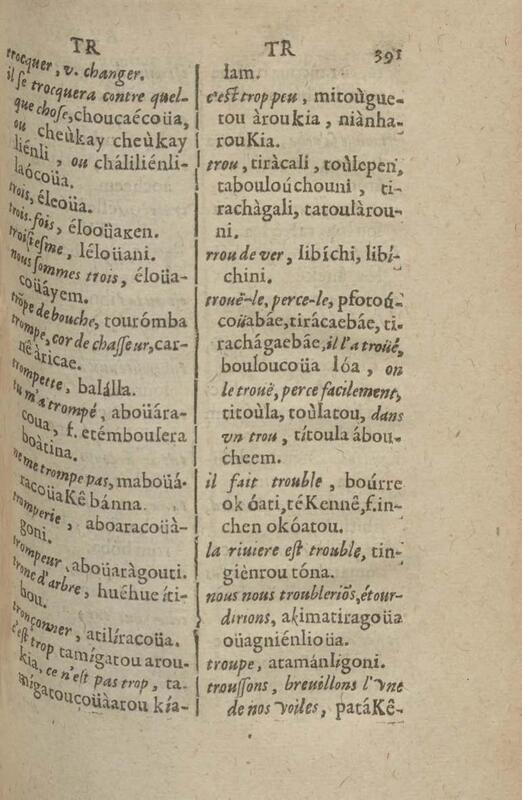 TR
trocquer, v. changer.
il ſe trocquera contre quel-
que choſe, choucaécoüa,
ou cheùkay cheùkay
liénli, ou cháliliénli-
laócoüa.
trois, éleoüa.
trois-fois, élooüaKen.
troisieſme, léloüani.
nous ſommes trois, éloüa-
coüáyem.
trõpe de bouche, tourómba
trompe, cor de chaſſeur, car-
nêàricae.
trompette, balálla.
tu m'a trompé, aboüára-
coua, f. etémbouſera
boàtina.
ne me trompe pas, maboüá-
racoüaKê bánna.
tromperie, aboaracoüà-
goni.
trompeur, aboüaràgouti.
tronc d'arbre, huéhue íti-
bou.
tronçonner, atilíracoüa.
c'eſt trop tamígatou arou-
kia, ce n'eſt pas trop, ta-
mígatoucoüàarou kía-
TR 391
lam.
c'eſt trop peu, mitoùgue-
tou àroukia, niànha-
rouKia.
trou, tiràcali, toùlepen,
tabouloúchouni, ti-
rachàgali, tatoulàrou-
ni.
rrou de ver, libíchi, libí-
chini.
trouë-le, perce-le, pſotoú-
coüabáe, tirácaebáe, ti-
rachágaebáe, il l'a troüé,
bouloucoüa lóa, on
le trouë, perce facilement,
titoùla, toùlatou, dans
vn trou, títoula ábou-
cheem.
il fait trouble, boúrre
oK óati, té Kennê, f. in-
chen oKóatou.
la riuiere eſt trouble, tin-
giènrou tóna.
nous nous troubleriõs, étour-
dirions, aKimatiragoüa
oüagniénlioüa.
troupe, atamánlígoni.
trouſſons, breuillons l'vne
de nos voiles, patáKê-